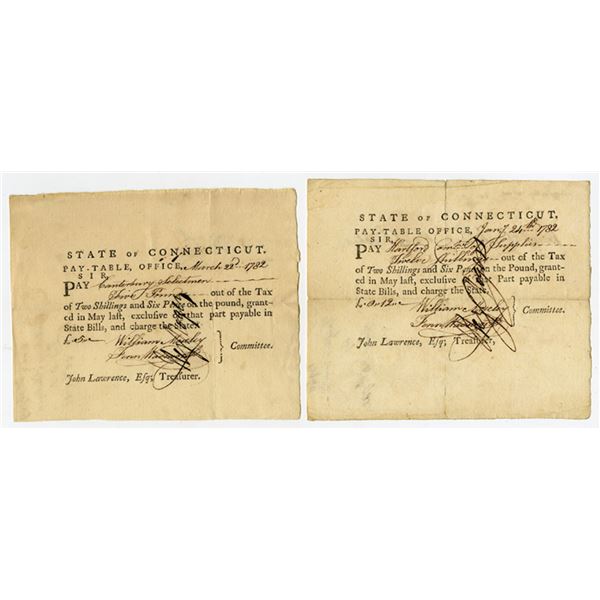 STATE OF CONNECTICUT.
PAY-TABLE, OFFICE, March 22d 1782
SIR,
PAY Canterbury Selectmen
Five Pounds out of the Tax
of Two Shillings and Six Pence on the pound, grant-
ed in May last, exclusive of that part payable in
State Bills, and charge the State.
William Mosely
Fenn Wadsworth } Committee.
John Lawrence, Esq; Treasurer.
STATE OF CONNECTICUT,
PAY-TABLE OFFICE, Jany 24th 1782
SIR,
PAY Hartford
Twelve Shillings out of the Tax
of Two Shillings and Six Pence on the Pound, grant-
ed in May last, exclusive of that Part payable in
State Bills, and charge the State.
£0..12..
William Mosely
Fenn Wadsworth } Committee.
John Lawrence, Esq; Treasurer,